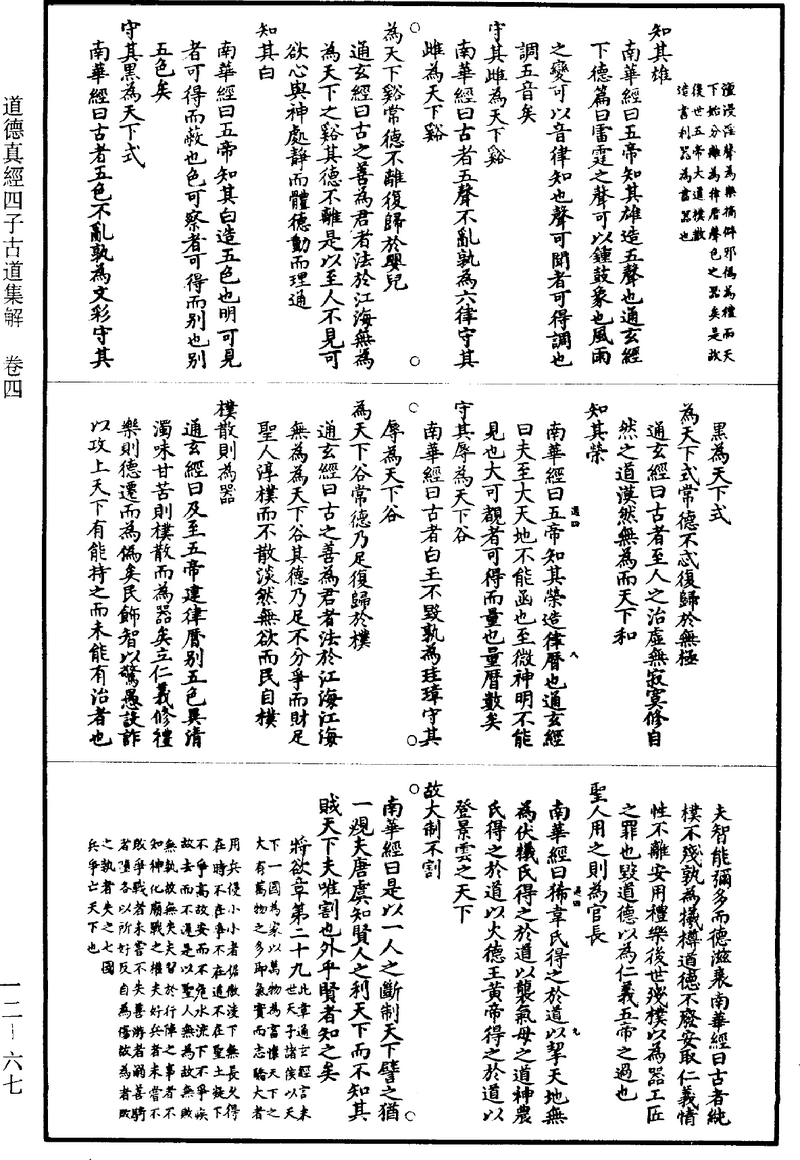 澶漫淫聲為樂摘僻邪偽為禮而天
下始分離為律磨聲色之器矣是故
後世五帝大道樸散
結言利器為言器也
知其雄
南華經曰五帝知其雄造五聲也通玄經
下德篇曰雷霆之聲可以鍾鼓象也風雨
之變可以音律知也聲可聞者可得調也
調五音矣
守其雌為天下谿
南華經曰古者五聲不亂孰為六律守其
雌為天下谿
為天下谿常德不離復歸於嬰兒
通玄經曰古之善為君者法於江海無為
為天下之谿其德不離是以至人不見可
欲心與神處靜而體德動而理通
知其白
南華經曰五帝知其白造五色也明可見
者可得而蔽也色可察者可得而別也別
五色矣
守其黑為天下式
南華經曰古者五色不亂孰為文彩守其
黑為天下式
為天下式常德不忒復歸於無極
通玄經曰古者至人之治虛無寂寞修自
然之道漠然無為而天下和
知其榮
南華經曰五帝知其榮造律曆也通玄經
曰夫至大天地不能函也至微神明不能
見也大可觀者可得而量也量曆數矣
守其辱為天下谷
南華經曰古者白玉不毀孰為珪璋守其
辱為天下谷
為天下谷常德乃足復歸於樸
通玄經曰古之善為君者法於江海江海
無為為天下谷其德乃足不分爭而財足
聖人淳樸而不散淡然無欲而民自樸
樸散則為器
通玄經曰及至五帝建律曆別五色異清
濁味甘苦則樸散而為器矣立仁義修禮
樂則德遷而為偽矣民飾智以驚愚設詐
以攻上天下有能持之而未能有治者也
夫智能彌多而德滋衰南華經曰古者純
樸不殘孰為犧樽道德不廢安取仁義情
性不離安用禮樂後世殘樸以為器工匠
之罪也毀道德以為仁義五帝之過也
聖人用之則為官長
南華經曰狶韋氏得之於道以挈天地無
為伏犧氏得之於道以襲氣母之道神農
氏得之於道以火德王黃帝得之於道以
登景雲之天下
故大制不割
南華經曰是以一人之斷制天下譬之猶
一覕夫唐虞知賢人之利天下而不知其
賊天下夫唯割也外乎賢者知之矣
將欲章第二十九此章通玄經言末
世天子諸侯以天
下一國為家以萬物為畜懷天下之
大有萬物之多即氣實而志驕大者
用兵侵小小者倨傲淩下無長久得
在時不在爭在道不在聖土處下
不爭高故安而不危水流下不爭疾
故去而不遲是以聖人無為故無敗
無執故無失夫習於行陣之事者不
知神化廟戰之權夫好兵者未嘗不
敗爭戰者未嘗不失善游者溺善騎
者墮各以所好反自為禍故為者敗
之執者失之七國
兵爭亡天下也
道德真經四子古道集解　卷四
一二—六七